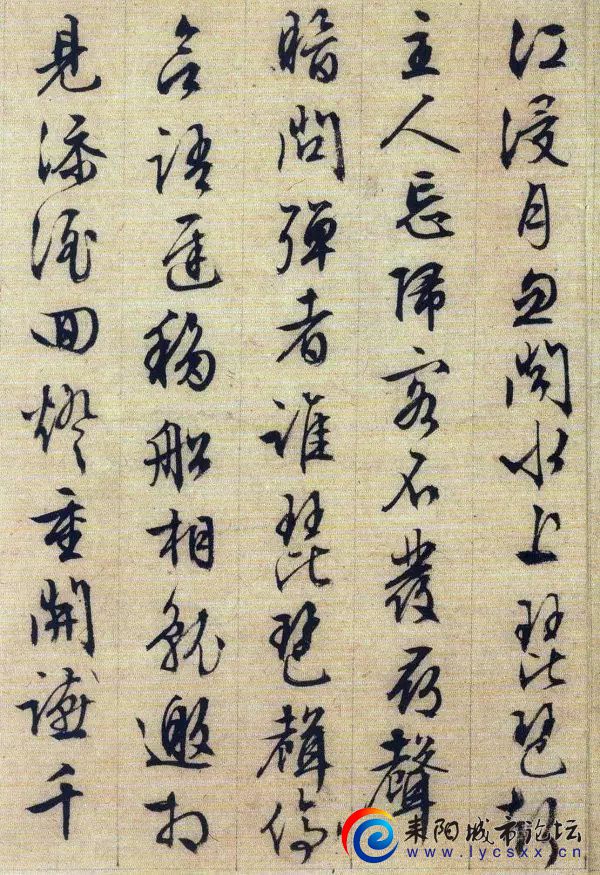 江浸月忽聞水上琵琶聲
主人忘歸客不發尋聲
暗問彈者誰琵琶聲停
欲語遲移船相就邀相
見添酒回燈重開讌千
耒阳城市论坛
www.lycsxx.cn